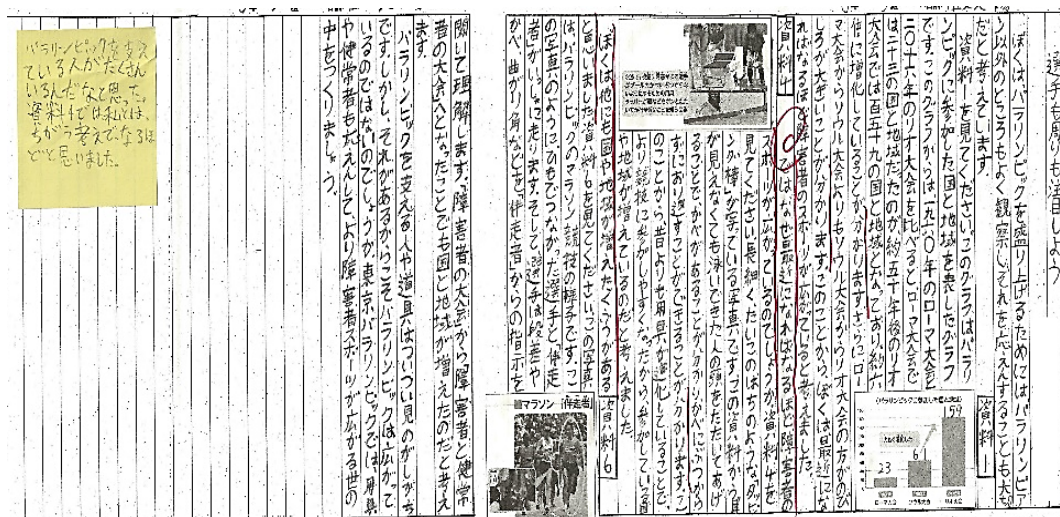 選手も周りも注目しよう
ぼくはパラリンピックを盛り上げるためにはパラリンピア
ン以外のところもよく観察し、それを応えんすることも大切
だと考えています。
資料1
資料1を見てください。このグラフはパラリ
ンピックに参加した国と地域を表したグラフ
です。このグラフからは一九六〇年のローマ大会と
二〇十六年のリオ大会を比べると、ローマ大会で
は二十三の国と地域だったのが約五十年後のリオ
大会では百五十九の国と地域となっており、約六
倍に増加していることが分かります。さらにロー
マ大会からソウル大会よりもソウル大会からリオ大会の方がのび
しろが大きいことが分かります。このことから、ぼくは最近にな
ればなるほど障害者のスポーツが広がっていると考えました。
資料4
では、なぜ最近になればなるほど障害者の
スポーツが広がっているのでしょうか。資料4を
見てください。長細くたいこのばちのような「タッピ
ング棒」が写っている写真です。この資料から目
が見えなくても泳いできた人の頭をたたいてあげ
ることで、かべがあることが分かり、かべにぶつから
ずにおり返すことができることが分かります。こ
のことから昔よりも用具が進化していることで、
より競技に参加がしやすくなったから、参加している国
や地域が増えているのだと考えました。
ぼくは他にも国や地域が増えたくふうがある
と思いました。資料6を見てください。この写真
資料6
は、パラリンピックのマラソン競技の様子です。こ
の写真のように、ひもでつながった選手と「伴走
者」がいっしょに走ります。そして、選手は段差や
かべ、曲がり角などを「伴走者」からの指示を
マラソン「伴走者」
聞いて理解します。「障害者の大会」から「障害者と健常
者の大会」へとなったことでも国と地域が増えたのだと考え
ます。
パラリンピックを支える人や道具はついつい見のがしがち
です。しかし、それがあるからこそパラリンピックは広がって
いるのではないのでしょうか。東京パラリンピックでは、用具
や健常者も応えんして、より障害者スポーツが広がる世の
中をつくりましょう。
(パラリンピックに参加した国と地域)
大きく増加した
23
61
159
ローマ大会
ソウル大会
リオ大会
パラリンピックをささえ
ている人がたくさん
いるんだなと思った。
資料4では私とは、
ちがう考えでなるほ
どと思いました。